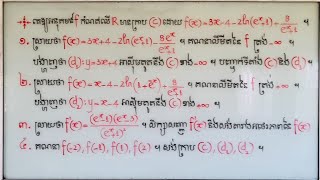 + គេឱ្យអនុគមន៍ f កំណត់លើ R មានក្រាប (C) ដោយ f(x)=3x+4-2ln(eˣ+1)- 8/(eˣ+1) ។
១. ស្រាយថា f(x)=3x-4-2ln(eˣ+1)+ 8eˣ/(eˣ+1) ។ គណនាលីមីតនៃ f ត្រង់ -∞ ។
បង្ហាញថា (d₁): y=3x-4 អាស៊ីមតូតនឹង (C) ខាង -∞ ។ បញ្ជាក់ទីតាំង (C) នឹង (d₁) ។
២. ស្រាយថា f(x)=x+4-2ln(1+e⁻ˣ)- 8/(eˣ+1) ។ គណនាលីមីតនៃ f ត្រង់ +∞ ។
បង្ហាញថា (d₂): y=x+4 អាស៊ីមតូតនឹង (C) ខាង +∞ ។
៣. ស្រាយថា f'(x)= (eˣ+1)(eˣ+3)/(eˣ+1)² ។ សិក្សាសញ្ញា f'(x) និងសង់តារាងអថេរភាពនៃ f
៤. គណនា f(-2), f(-1), f(1), f(2) ។ សង់ក្រាប (C), (d₁), (d₂) ។